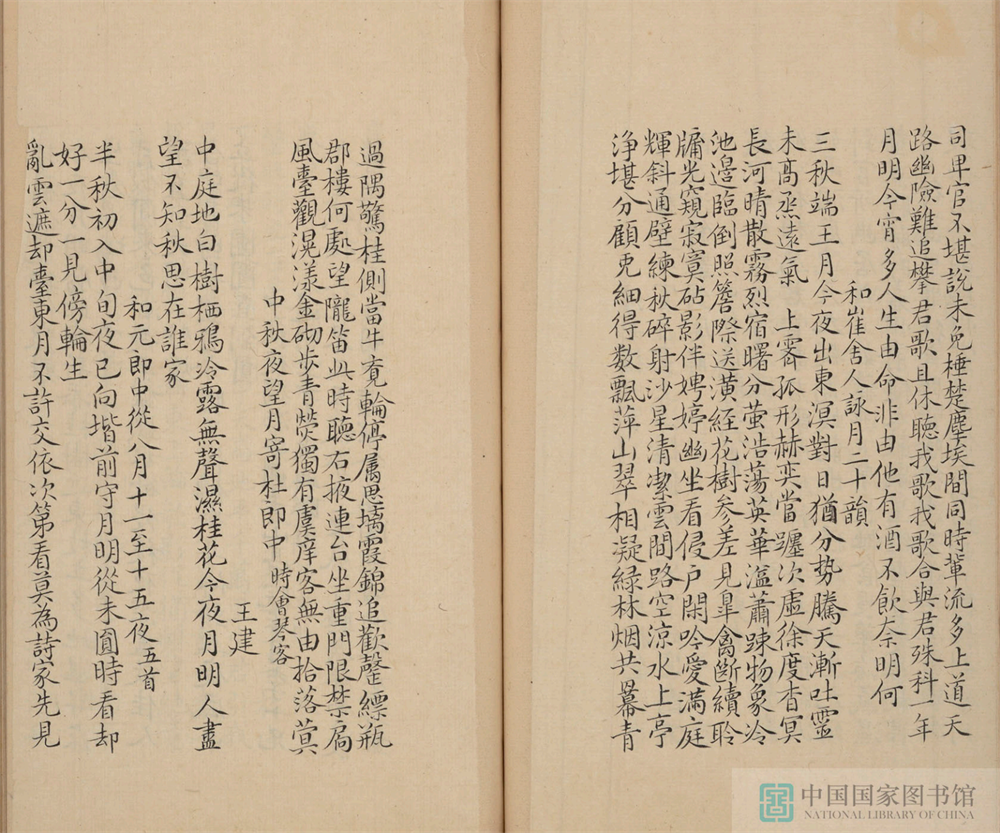 司卑官不堪說未免棰楚塵埃間同時輩流多上道天
路幽險難追攀君歌且休聽我歌我歌合與君殊科一年
月明今宵多人生由命非由他有酒不飲奈明何
和崔舍人詠月二十韻
三秋端正月今夜出東溟對日猶分势騰天漸吐靈
未髙烝遠氣 上霽孤形赫奕當躔次虛徐度杳冥
長河晴散霧烈宿曙分萤浩蕩英華溢蕭踈物象冷
池邊臨倒照簷際送潢経花樹参差見臯禽斷續聆
牗光窺寂寞砧影伴娉婷幽坐看侵户閑吟愛滿庭
輝斜通壁練秋碎射沙星清潔雲間路空涼水上亭
浄堪分顧兎細得数飄萍山翠相凝緑林烟共幕青
過隅驚桂側當午覔輪停属思摛霞錦追歡罄縹瓶
郡樓何處望隴笛此時聽右掖連台坐重門限禁扃
風臺觀滉漾金砌步青熒獨有虞庠客無由拾落蓂
中秋夜望月寄杜郎中 時會琴客
王建
中庭地白樹栖鴉冷露無聲濕桂花今夜月明人盡
望不知秋思在誰家
和元郎中從八月十一至十五夜五首
半秋初入中旬夜已向堦前守月明從未圓時看却
好一分一見傍輪生
亂雲遮却臺東月不許交依次第看莫為詩家先見
中国国家图书馆
NATIONAL LIBRARY OF CHINA